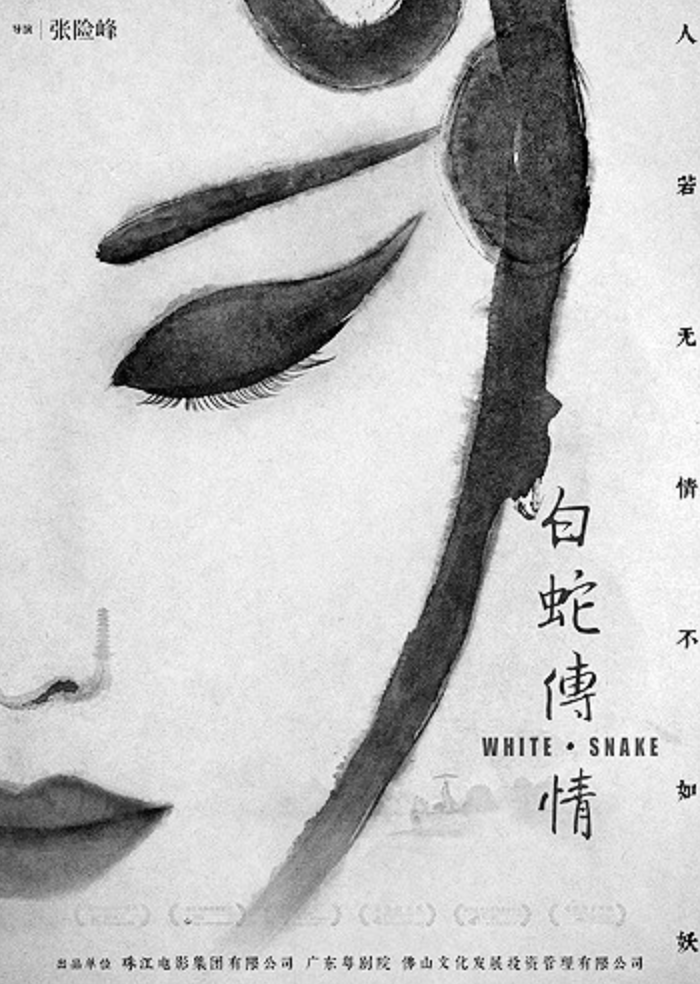 导演 | 张险峰
人若无情不如妖
白蛇傳情
WHITE • SNAKE
出品单位 珠江电影集团有限公司 广东粤剧院 佛山文化发展投资管理有限公司